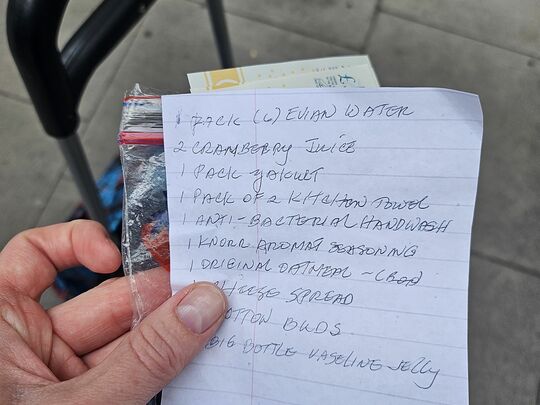 1 PACK (6) EVIAN WATER
2 CRANBERRY JUICE
1 PACK YAKULT
1 PACK OF 2 KITCHEN TOWEL
1 ANTI-BACTERIAL HANDWASH
1 KNORR AROMAT SEASONING
1 ORIGINAL OATMEAL - (BOX)
CHEESE SPREAD
COTTON BUDS
BIG BOTTLE VASELINE JELLY